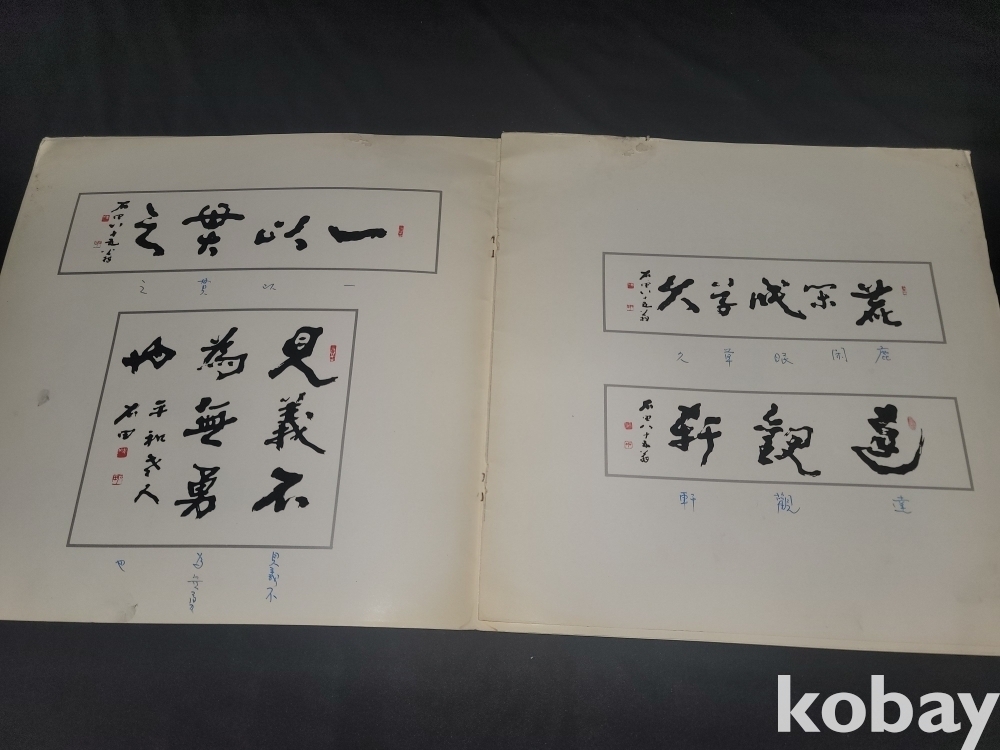 一以貫之
石田八十五翁
一以貫之
見義不
為無勇
也
平和老人
石田
見義不
為無勇
也
鹿眠草久
石田八十五翁
鹿草久
達觀軒
石田八十五翁
達觀軒
kobay